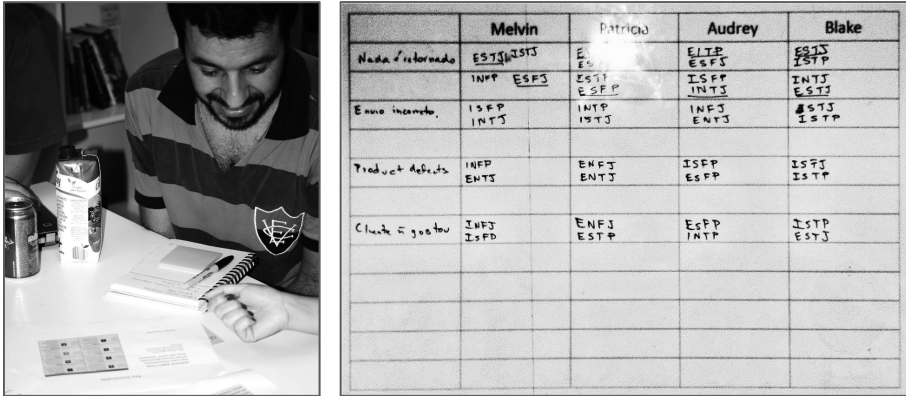 Melvin Patricia Audrey Blake
Nada é retornado ESTJ ISTJ EITP ESTJ
ESFJ ISTP
INFP ESFJ ISTP ISFP INTJ
ESFP INTJ ESTJ
Envio incorreto. ISFP INTP INFJ ISTJ
INTJ ISTJ ENTJ ISTP
Product defects INFP ENFJ ISFP ISFJ
ENTJ ENTJ ESFP ISTP
Cliente ñ gostou INFJ ENFJ ESFP ISTP
ISFD ESTP INTP ESTJ